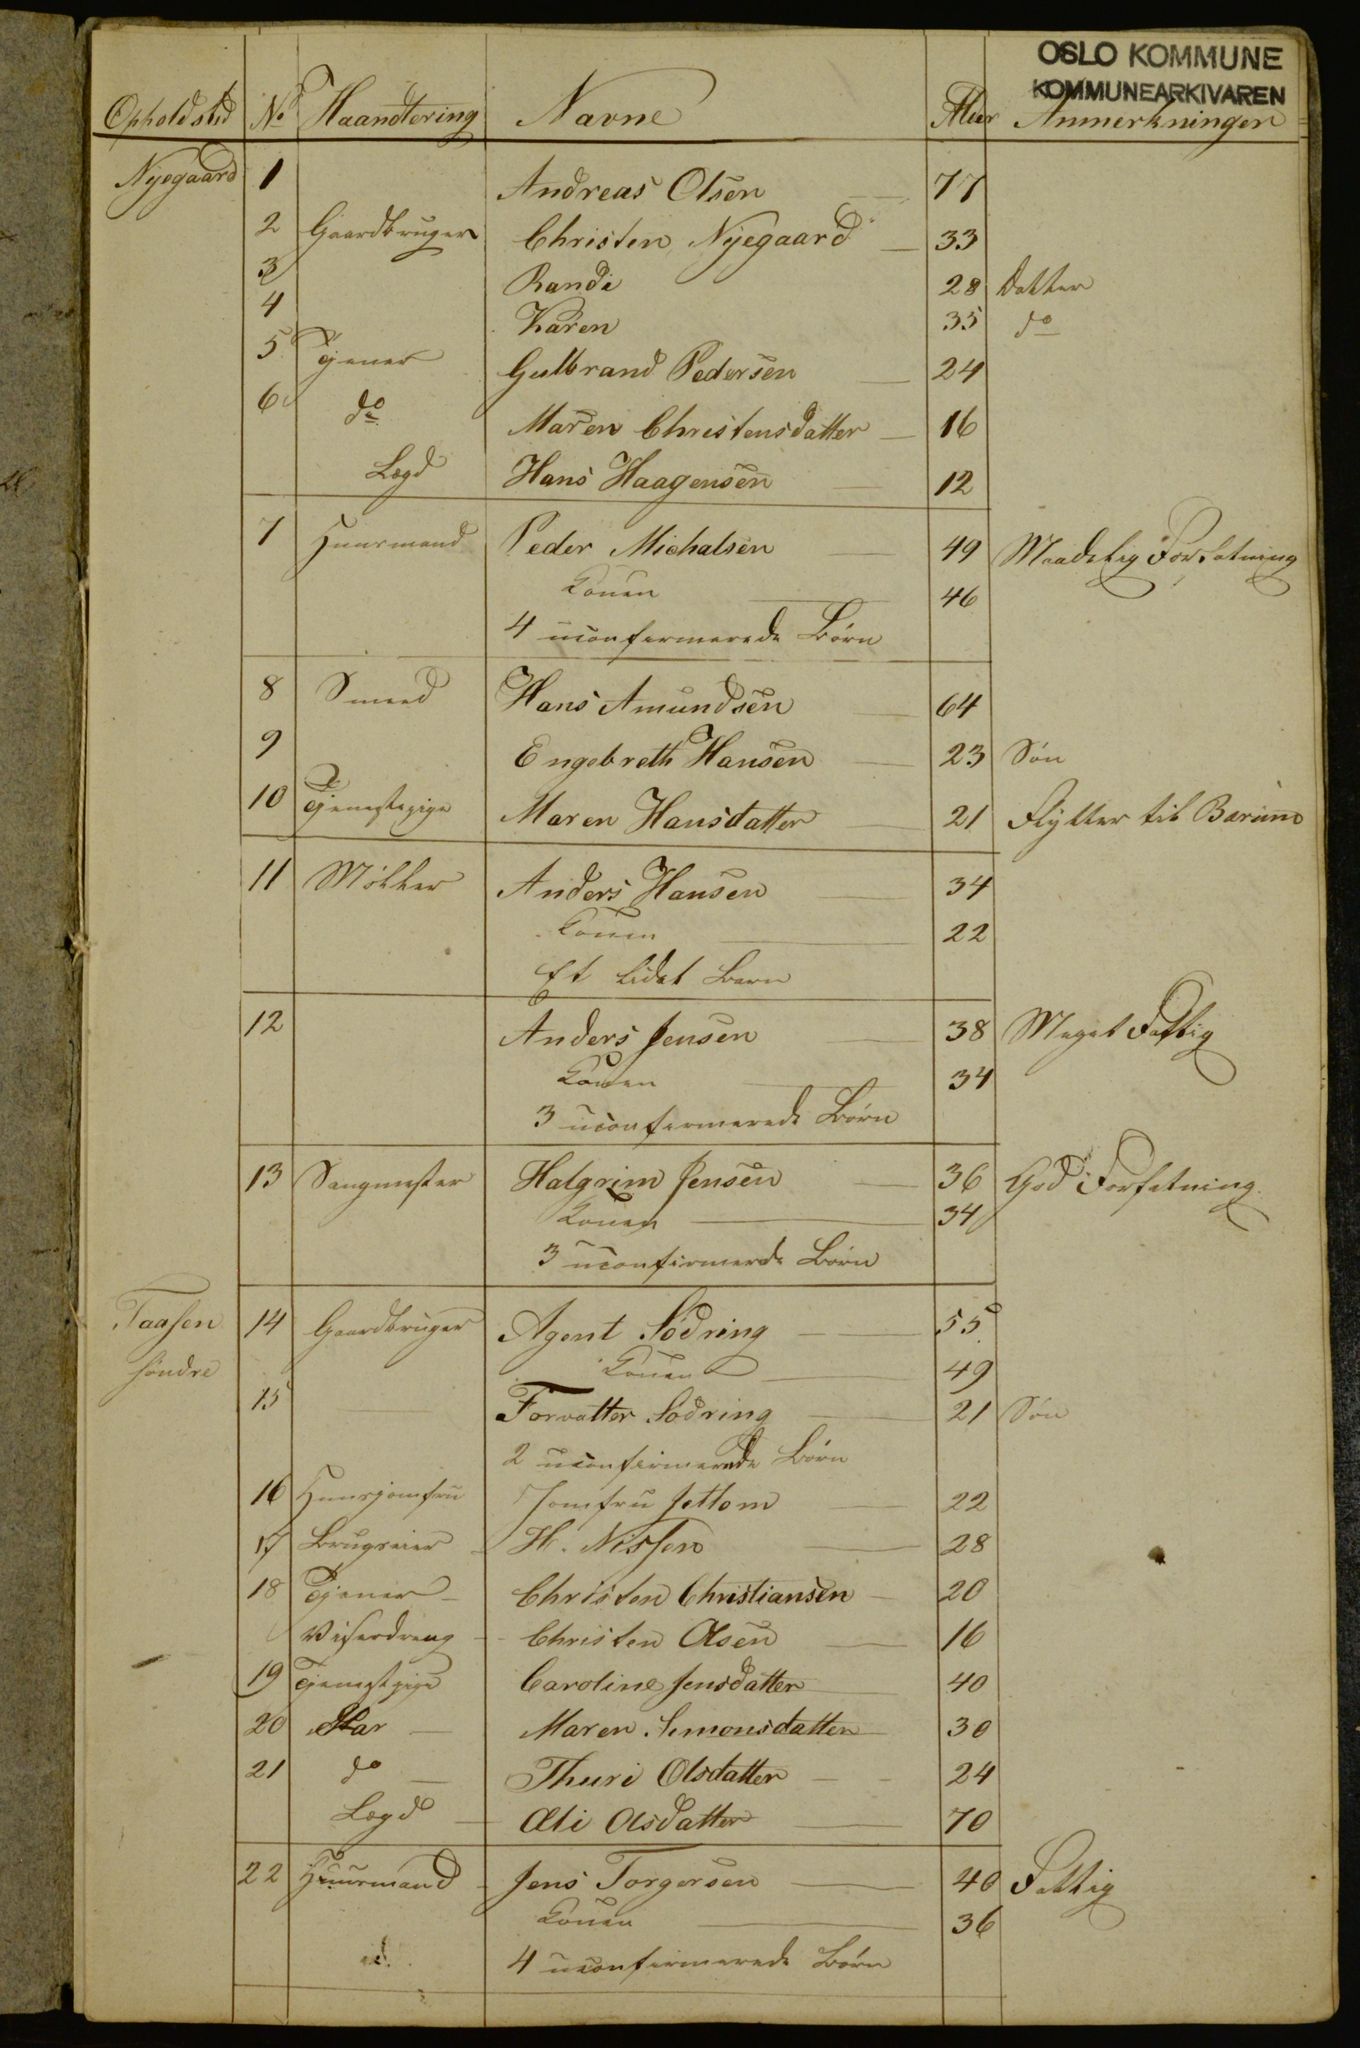 OSLO KOMMUNE
KOMMUNEARKIVAREN
Opholdsted No Haandtering Navne Alder Anmerkninger
Nyegaard 1 Andreas Olsen 77
2 Gaardbruger Christen Nyegaard 33
3 Randi 28 Datter
4 Karen 35 do
5 Tjener Gulbrand Pedersen 24
6 do Maren Christensdatter 16
Lægd Hans Haagensen 12
7 Huusmand Peder Michalsen 49 Maadelig Forfatning
Konen 46
4 uconfirmerede Børn
8 Smed Hans Amundsen 64
9 Engebreth Hansen 23 Søn
10 Tjenestepige Maren Hansdatter 21 Flytter til Bærum
11 Møller Anders Hansen 34
Konen 22
Et lidet Barn
12 Anders Jensen 38 Meget Fattig
Konen 34
3 uconfirmerede Børn
13 Saugmester Halgrim Jensen 36 God Forfatning
Konen 34
3 uconfirmerde Børn
Taasen 14 Gaardbruger Agent Södring 55
søndre Konen 49
15 Forvalter Södring 21 Søn
2 uconfirmerede Børn
16 Huusjomfru Jomfru 22
17 Brugseier H. Nissen 28
18 Tjener Christen Christiansen 20
Viserdreng Christen Olsen 16
19 Tjenestpige Caroline Jensdatter 40
20 Maren Simonsdatter 30
21 do Thuri Olsdatter 24
Lægd Eli Olsdatter 70
22 Huusmand Jens Torgersen 40 Fattig
Konen 36
4 uconfirmerede Børn